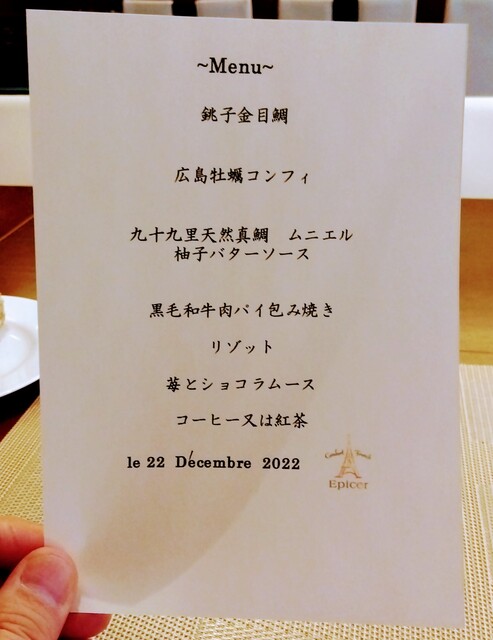 ~Menu~
銚子金目鯛
広島牡蠣コンフィ
九十九里天然真鯛　ムニエル
柚子バターソース
黒毛和牛肉パイ包み焼き
リゾット
苺とショコラムース
コーヒー又は紅茶
le 22 Décembre 2022
Epicer